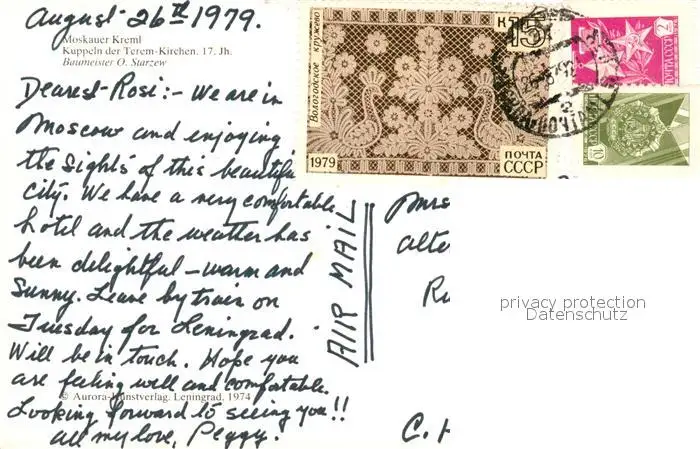 August 26th 1979.
Moskauer Kreml
Kuppeln der Terem-Kirchen. 17. Jh.
Baumeister O. Starzew
Dearest Rosi:- We are in
Moscow and enjoying
the sights of this beautiful
city. We have a very comfortable
hotel and the weather has
been delightful - warm and
sunny. Leave by train on
Tuesday for Leningrad.
Will be in touch. Hope you
are feeling well and comfortable.
© Aurora-Kunstverlag. Leningrad. 1974
Looking forward to seeing you!!
All my love, Peggy.
AIR MAIL
Вологодское кружево
К 15
1979
ПОЧТА
СССР
2 К
ПОЧТА СССР
10
Mrs
Alte
Ru
C. H
privacy protection
Datenschutz